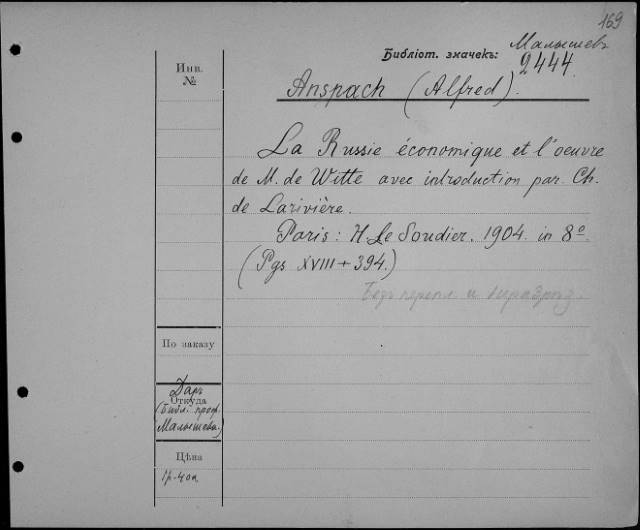 169
Малышевъ
Библіот. значекъ: 2444.
Инв.
№
Anspach (Alfred).
La Russie économique et l'oeuvre
de M. de Witte avec introduction par. Ch.
de Larivière.
Paris: H. Le Soudier. 1904. in 8º.
(Pgs XVIII + 394.)
Безъ перепл. и неразрѣз.
По заказу
Даръ
Откуда
(Библ. проф.
Малышева.)
Цѣна
1р.-40к.